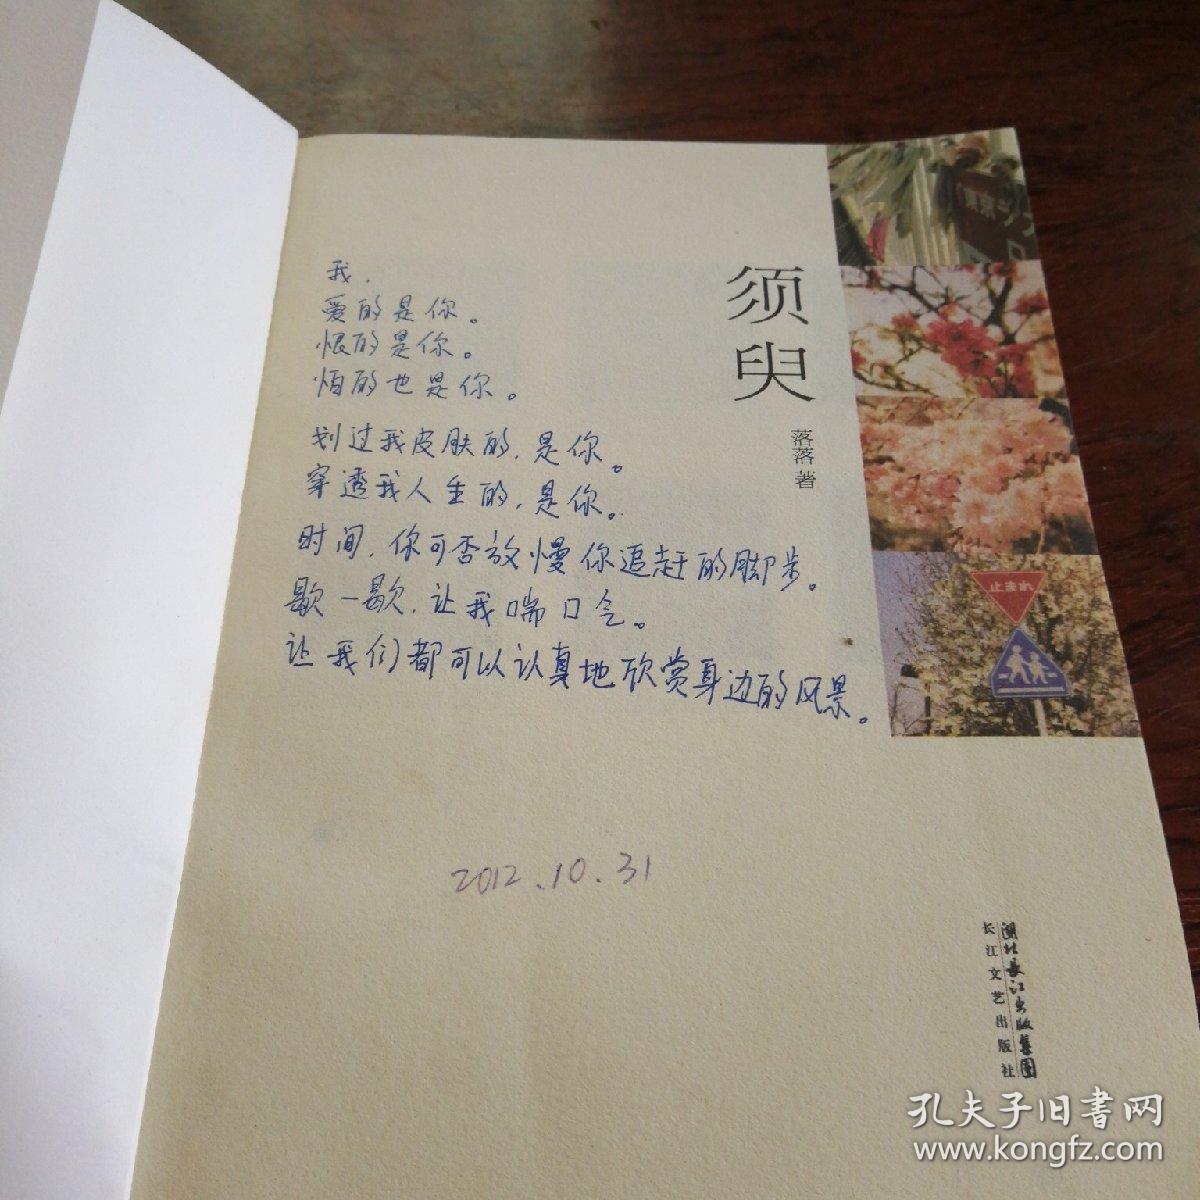 我,
爱的是你。
恨的是你。
怕的也是你。
划过我皮肤的,是你。
穿透我人生的,是你。
时间,你可否放慢你追赶的脚步。
歇一歇,让我喘口气。
让我们都可以认真地欣赏身边的风景。
2012.10.31
须臾
落落著
東京
止まれ
湖北长江出版集团
长江文艺出版社
孔夫子旧书网
www.kongfz.com